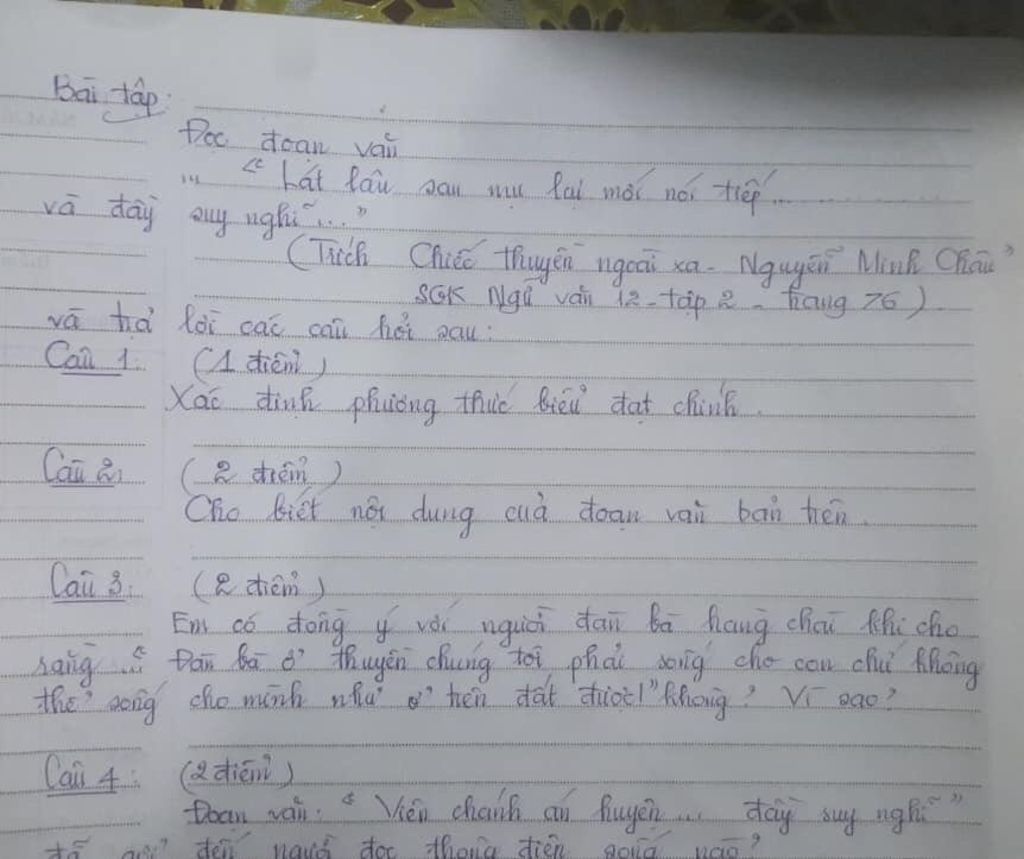 Bài tập:
Đọc đoạn văn
... "Lát lâu sau mụ lại mới nói tiếp ...
và đầy suy nghĩ ..."
(Trích Chiếc thuyền ngoài xa - Nguyễn Minh Châu"
SGK Ngữ văn 12 - tập 2 - trang 76)
và trả lời các câu hỏi sau:
Câu 1: (1 điểm)
Xác định phương thức biểu đạt chính.
Câu 2: (2 điểm)
Cho biết nội dung của đoạn văn bản trên.
Câu 3: (2 điểm)
Em có đồng ý với người đàn bà hàng chài khi cho
rằng "Đàn bà ở thuyền chúng tôi phải sống cho con chứ không
thể sống cho mình như ở trên đất được!" không? Vì sao?
Câu 4: (2 điểm)
Đoạn văn: "Viên chánh án huyện ... đầy suy nghĩ"
đã gửi đến người đọc thông điệp sống nào?